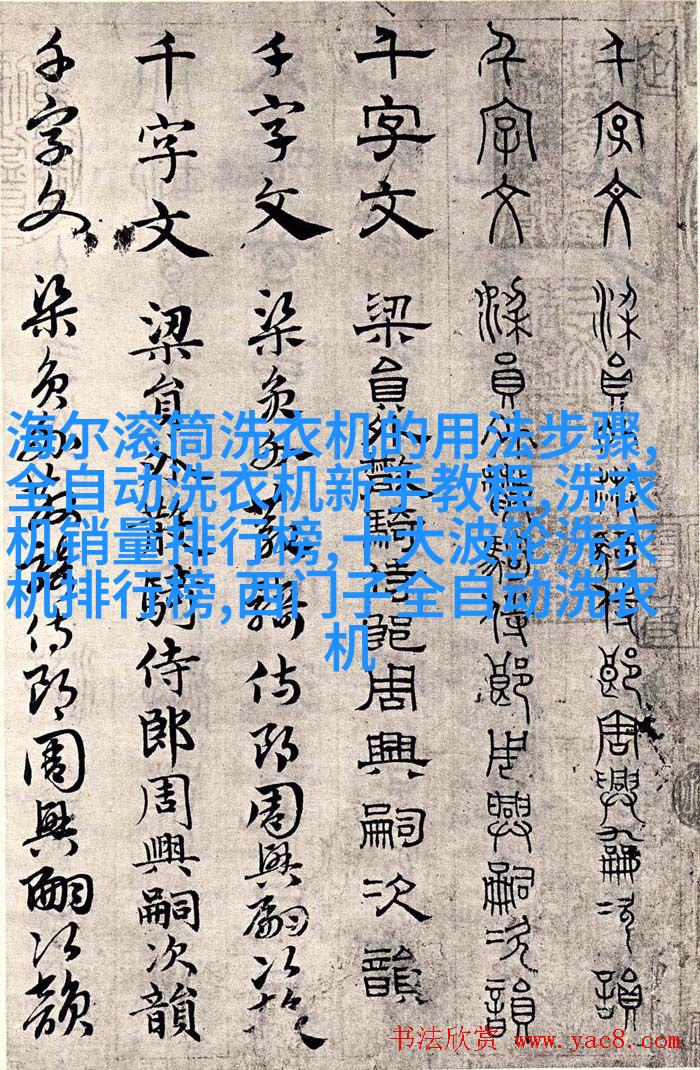 千字文 梁員外散騎侍郎周興嗣次韻
千字文 梁員外散騎侍郎周興嗣次韻
千字文 梁員外散騎侍郎周興嗣次韻
千字文 梁員外散騎侍郎周興嗣次韻
千字文 梁員外散騎侍郎周興嗣次韻
千字文 梁員外散騎侍郎周興嗣次韻
海尔滚筒洗衣机的用法步骤,
全自动洗衣机新手教程,洗衣
机销量排行榜,十大波轮洗衣
机排行榜,西门子全自动洗衣
机
书法欣赏 www.yac8.com